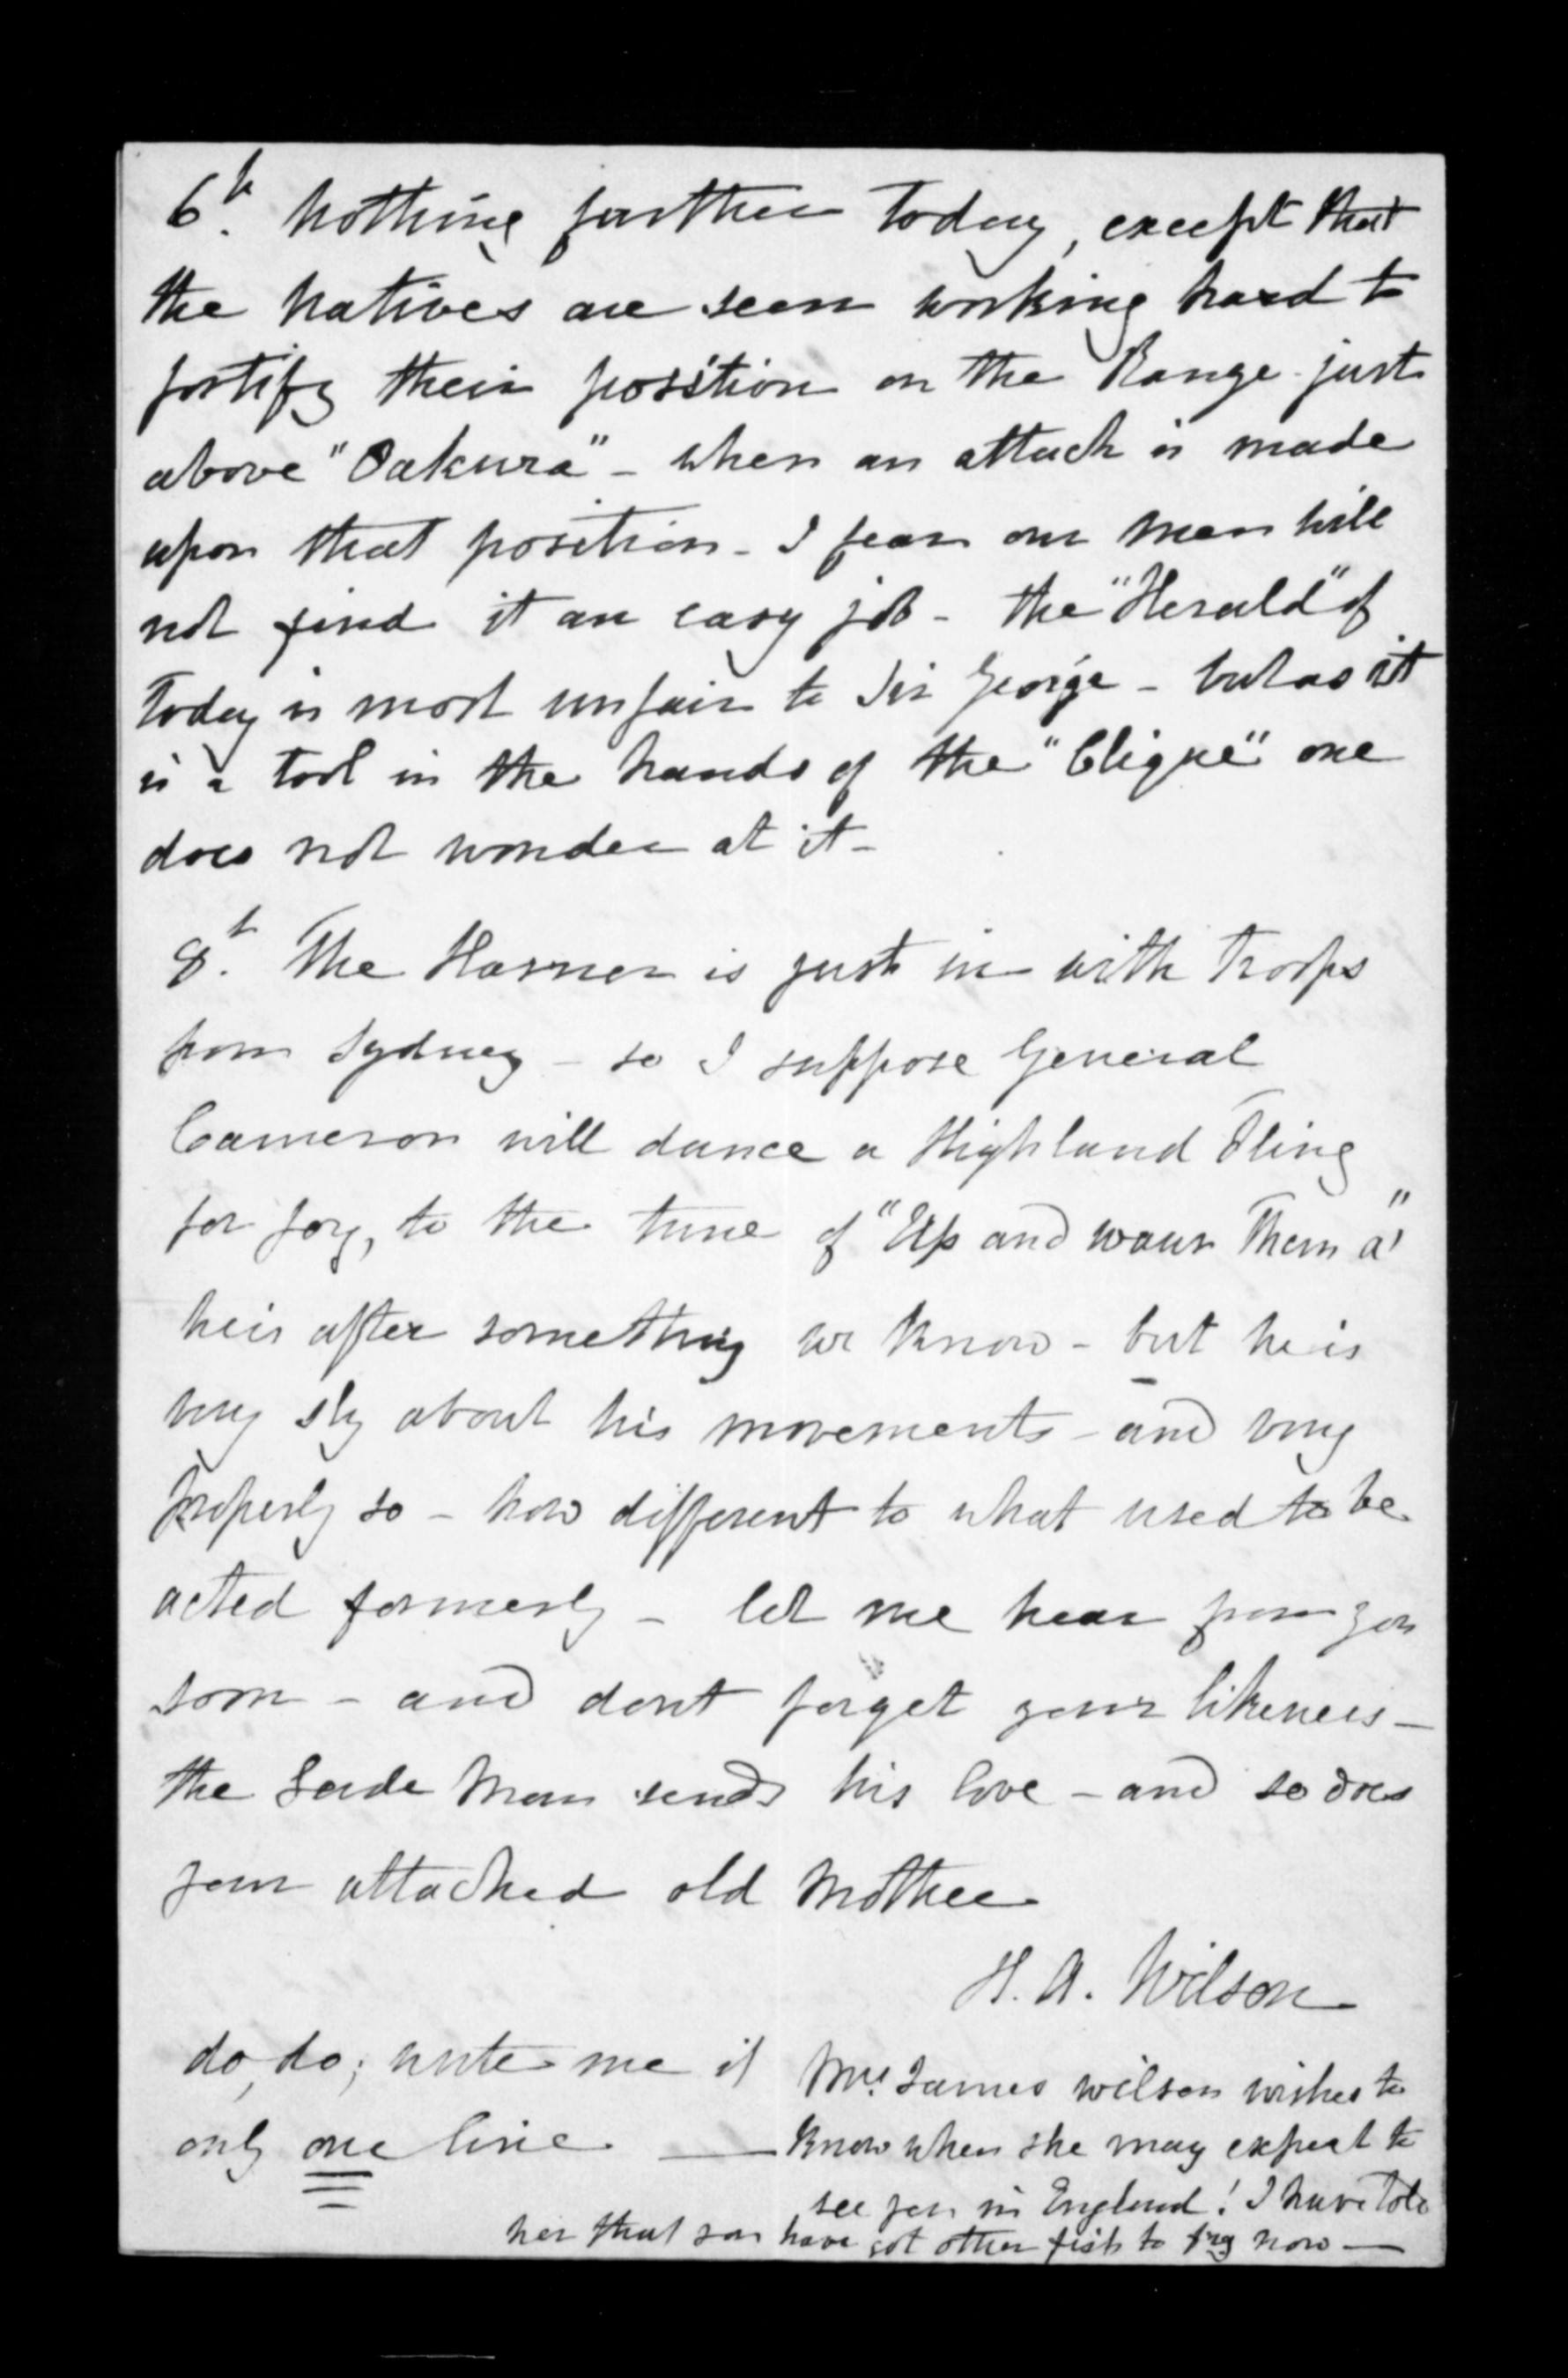 6th. Nothing further today, except that
the Natives are seen working hard to
fortify their position on the Range just
above "Oakura" - when an attack is made
upon that position - I fear our men will
not find it an easy job - the "Herald" of
today is most unfair to Sir George - but as it
is a tool in the hands of the "Clique" one
does not wonder at it -
8t. The Harrier is just in with Troops
from Sydney - so I suppose General
Cameron will dance a Highland Fling
for joy, to the tune of "Up and waur Them a'"
he is after something we know - but he is
very sly about his movements - and very
properly so - how different to what used to be
acted formerly - let me hear from you
soon - and dont forget your likeness -
the Man sends his love - and so does
your attached old Mother
H. A. Wilson
do, do; write me if
only one line
Mrs. James Wilson wishes to
know when she may expect to
see you in England! I have told
her that you have got other fish to fry now -